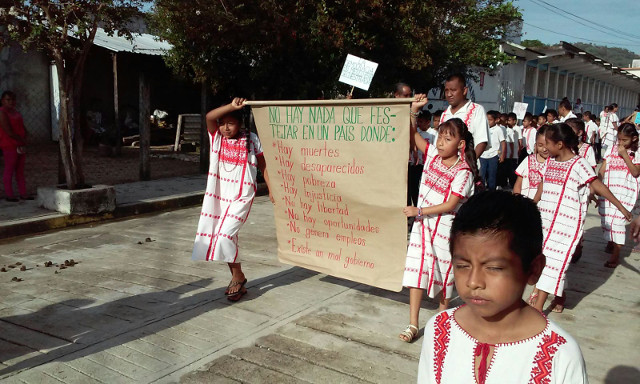 NO HAY NADA QUE FES-
TEJAR EN UN PAÍS DONDE:
* Hay muertes
* Hay desaparecidos
* Hay pobreza
* Hay injusticia
* No hay libertad
* No hay oportunidades
* No genera empleos
* Existe un mal gobierno